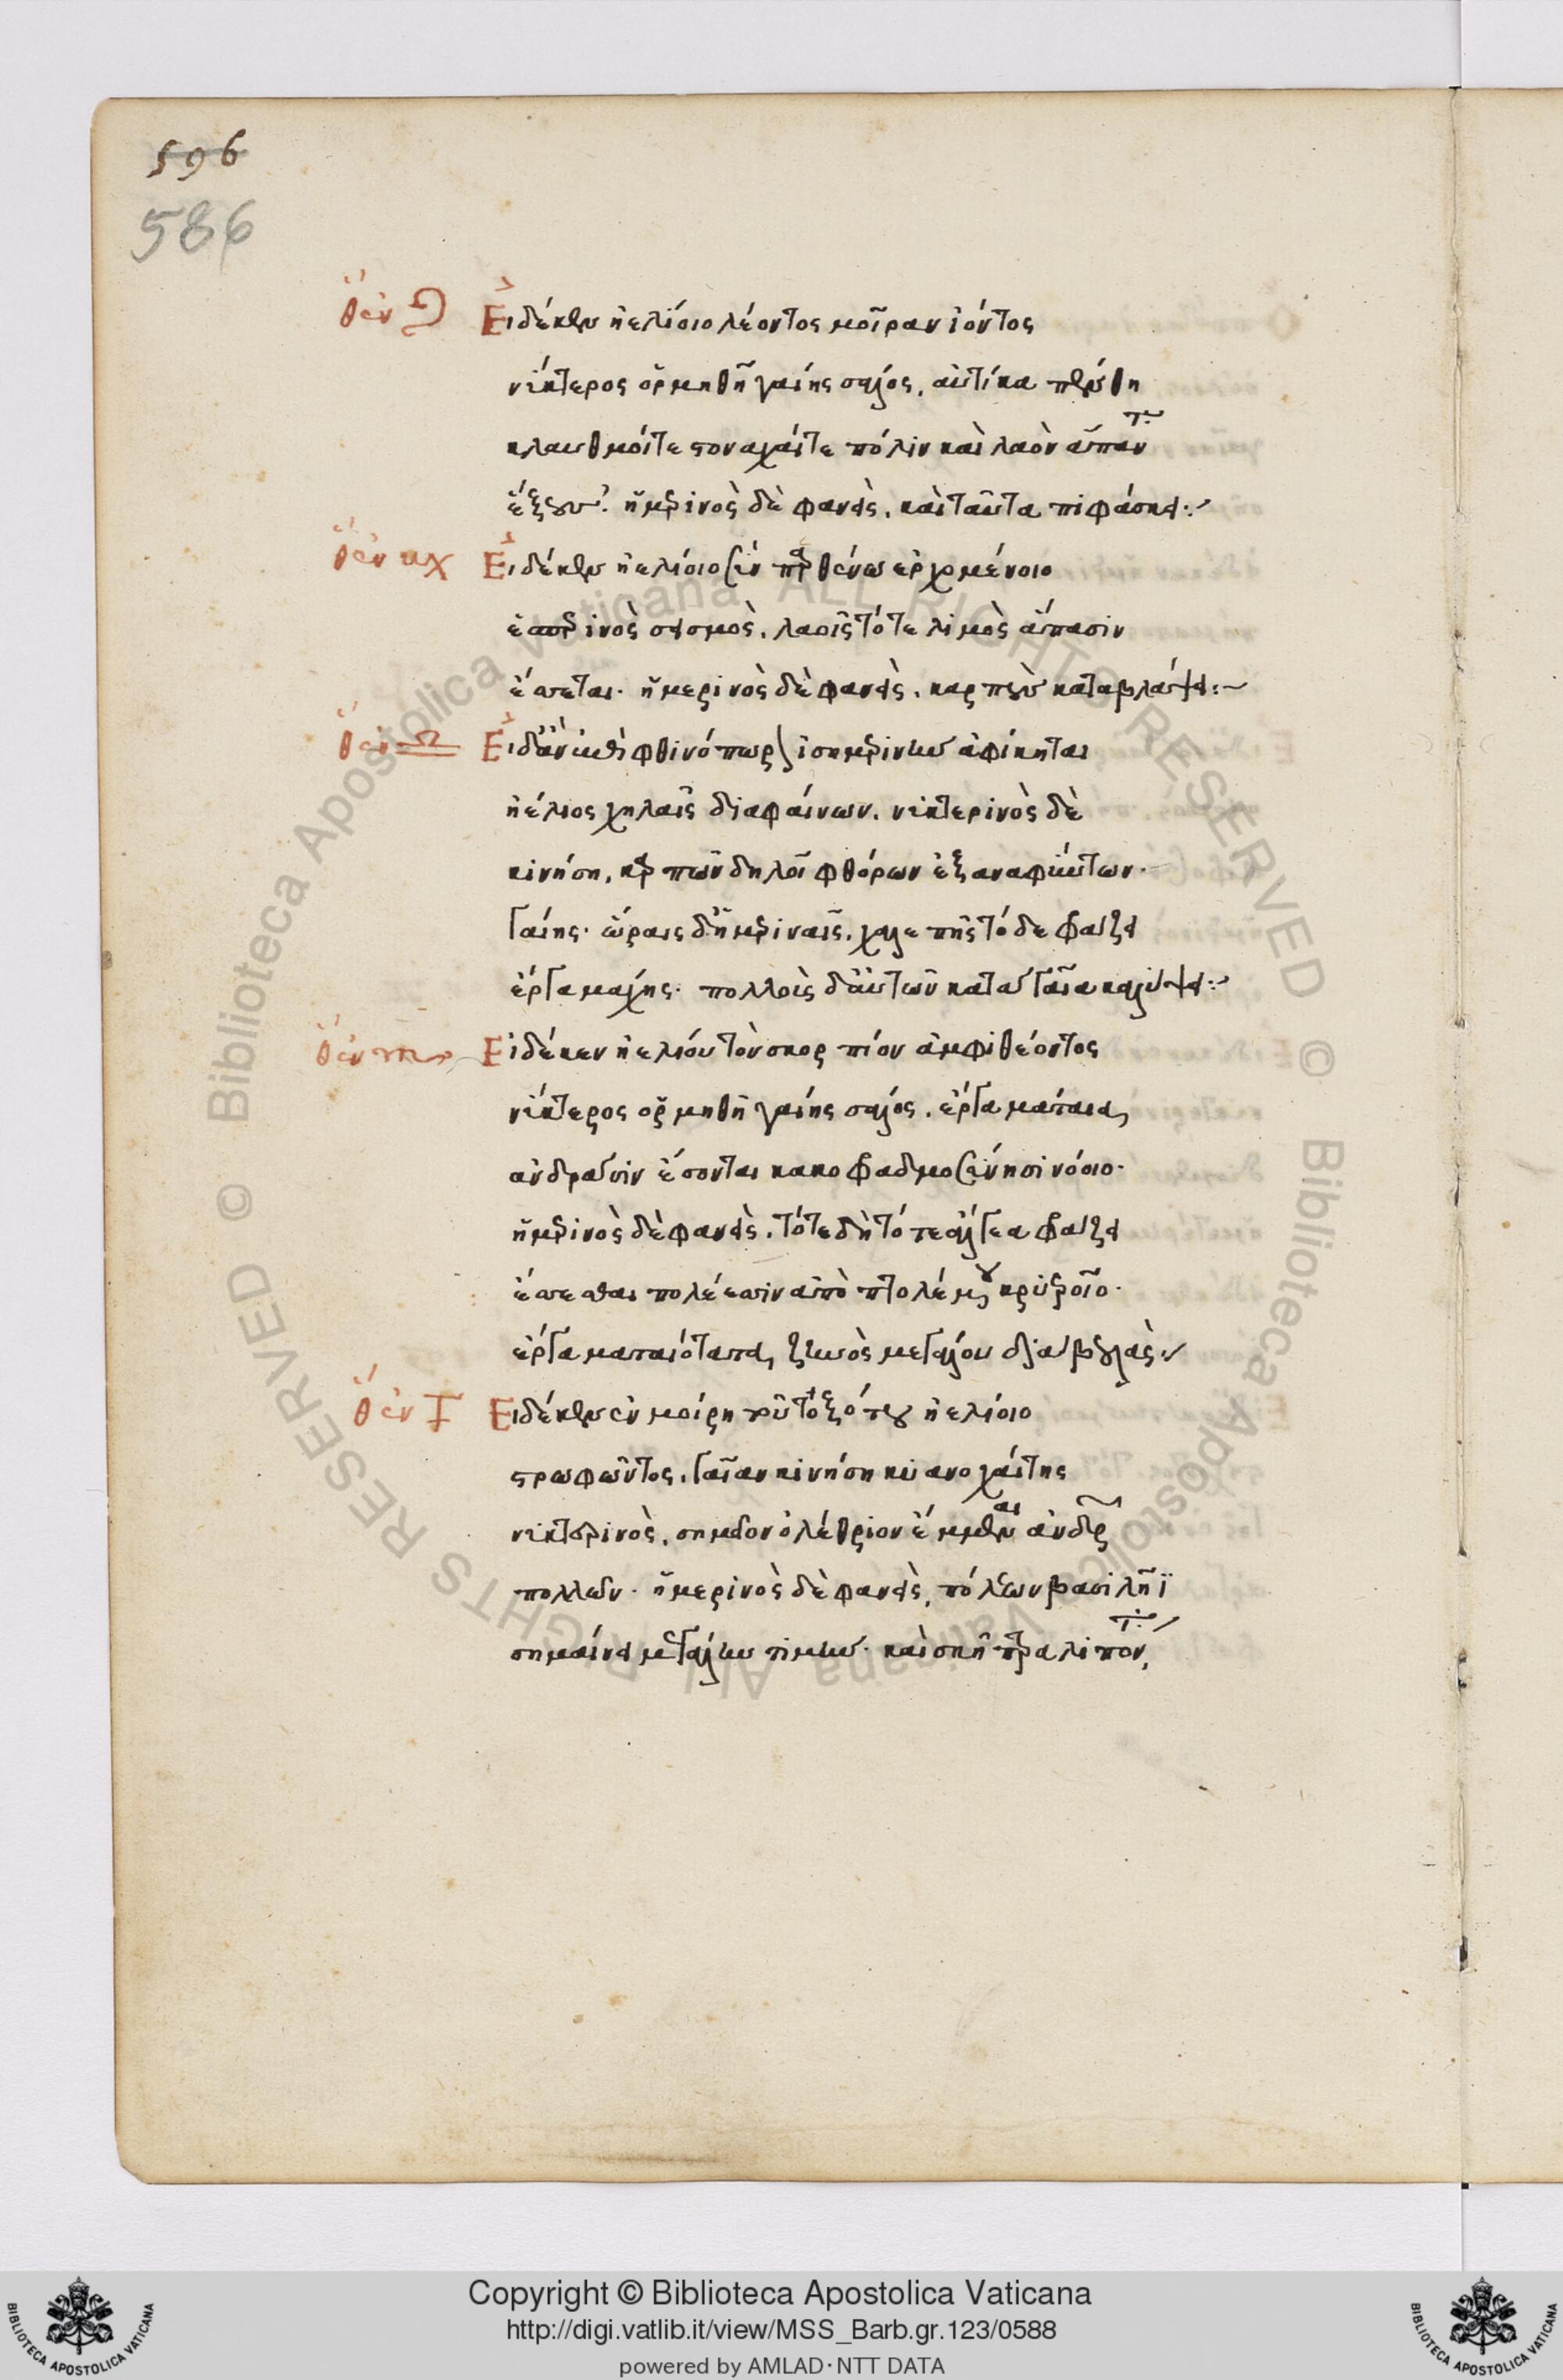 596
586
ὅθεν ♌ Εἰ δέ κεν ἠελίοιο λέοντος μοῖραν ἰόντος
νύκτερος ὁρμηθῇ γαίης σάλος, αὐτίκα πένθη
κλαυθμόν τε στοναχάς τε πόλιν καὶ λαὸν ἅπαντα
ἕξειν. ἡμερινὸς δὲ φανεὶς, καὶ ταῦτα πιφάσκει:
ὅθεν ♍ Εἰ δέ κεν ἠελίοιο σὺν παρθένω ἐρχομένοιο
ἑσπερινὸς σεισμὸς, λαοῖς τότε λιμὸς ἅπασιν
ἕψεται. ἡμερινὸς δὲ φανεὶς, καρποὺς καταβλάψει:
ὅθεν ♎ Εἰ δ' ἂν ἐπὶ φθινόπωρον ἰσημερινὴν ἀφίκηται
ἠέλιος χηλαῖς διαφαίνων, νυκτερινὸς δὲ
κινήση, καρπῶν δηλοῖ φθόρων ἐξαναφύντων
γαίης. ὥραις δ' ἡμεριναῖς, χαλεπῆς τόδε φράζει
ἔργα μάχης. πολλοὺς δ' αὐτῶν κατὰ γαῖα καλύψει:
ὅθεν ♏ Εἰ δέ κεν ἠελίου τὸν σκορπίον ἀμφιθέοντος
νύκτερος ὁρμηθῇ γαίης σάλος, ἔργα μάταια
ἀνδράσιν ἔσονται κακοφραδμοσύνησι νόοιο.
ἡμερινὸς δὲ φανεὶς, τότε δὴ τότε ἄλγεα φράζει
ἕψεσθαι πολέεσσιν ἀπὸ πτολέμου κρυεροῖο.
ἔργα ματαιότατα, ζηνὸς μεγάλου διὰ βουλὰς:
ὅθεν ♐ Εἰ δέ κεν ἐν μοίρη τοῦ τοξότου ἠελίοιο
στρωφῶντος, γαῖαν κινήση κυανοχαίτης
νυκτερινὸς, σημεῖον ὀλέθριον ἔμμεναι ἀνδρῶν
πολλῶν. ἡμερινὸς δὲ φανεὶς, πόλεων βασιλῆϊ
σημαίνει μεγάλην τιμὴν. καὶ σκῆπτρα λιπόντα,
Copyright © Biblioteca Apostolica Vaticana
http://digi.vatlib.it/view/MSS_Barb.gr.123/0588
powered by AMLAD·NTT DATA